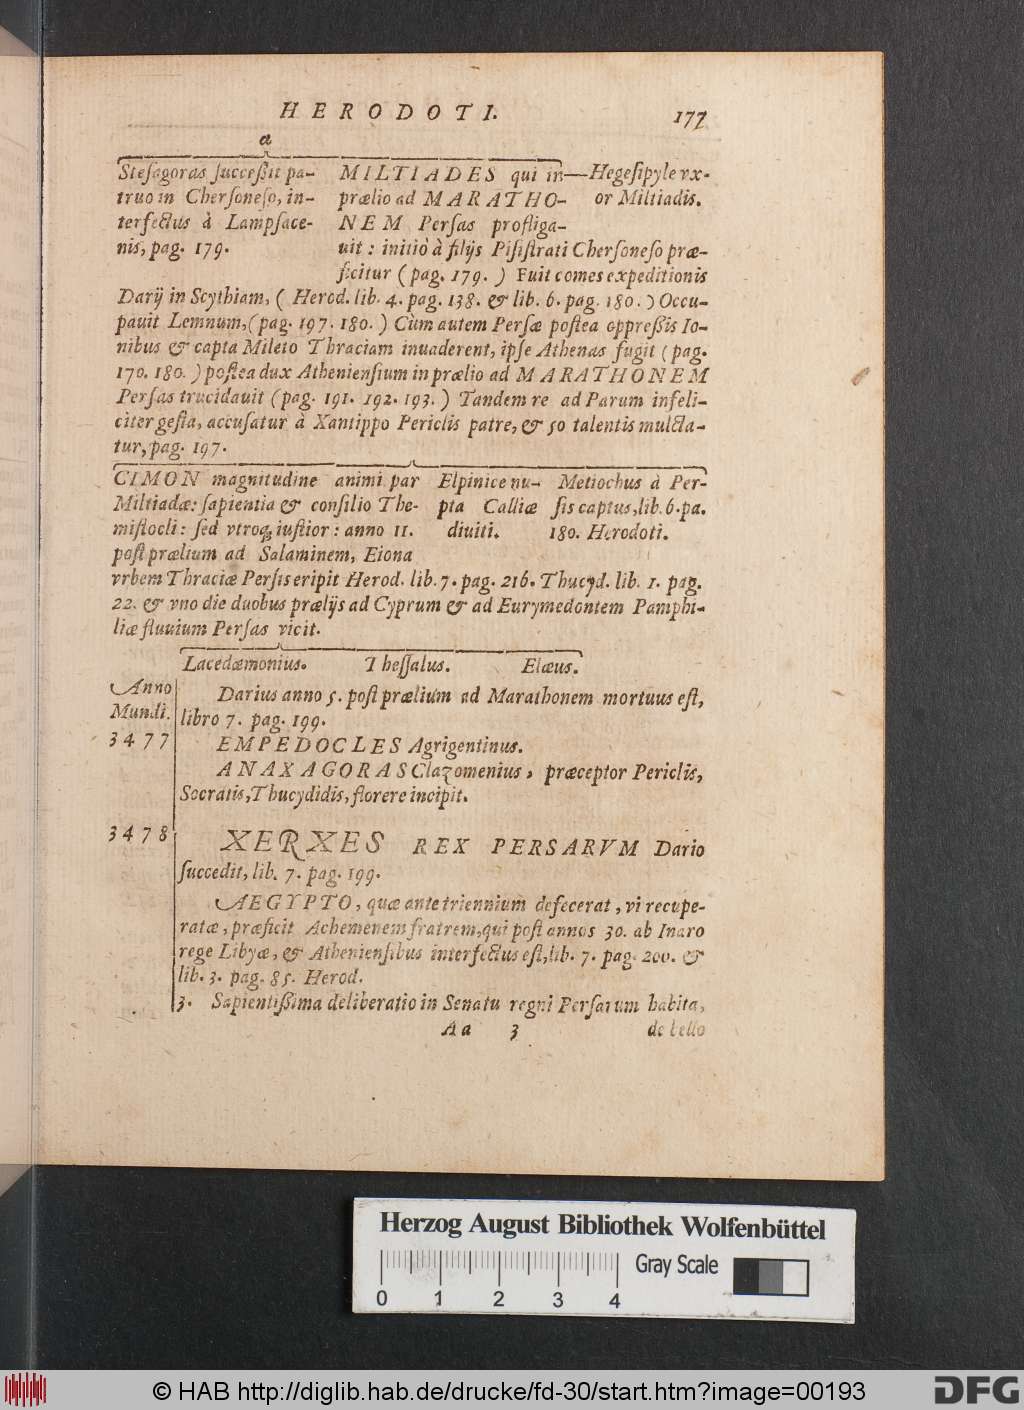 HERODOTI. 177
a
Steſagoras ſucceßit pa-
truo in Cherſoneſo, in-
terfectus à Lampſace-
nis, pag. 179.
MILTIADES qui in—Hegeſipyle vx-
prælio ad MARATHO- or Miltiadis.
NEM Perſas profliga-
uit : initiò à filijs Piſiſtrati Cherſoneſo præ-
ficitur (pag. 179. ) Fuit comes expeditionis
Darij in Scythiam, ( Herod. lib. 4. pag. 138. & lib. 6. pag. 180. ) Occu-
pauit Lemnum, (pag. 197. 180. ) Cùm autem Perſæ poſtea oppreßis Io-
nibus & capta Mileto Thraciam inuaderent, ipſe Athenas fugit (pag.
170. 180. ) poſtea dux Athenienſium in prælio ad MARATHONEM
Perſas trucidauit (pag. 191. 192. 193. ) Tandem re ad Parum infeli-
citer geſta, accuſatur à Xantippo Periclis patre, & 50 talentis mulcta-
tur, pag. 197.
CIMON magnitudine animi par
Miltiadæ: ſapientia & conſilio The-
miſtocli : ſed vtroq; iuſtior : anno 11.
poſt prælium ad Salaminem, Eiona
Elpinice nu-
pta Calliæ
diuiti.
Metiochus à Per-
ſis captus, lib. 6. pa.
180. Herodoti.
vrbem Thraciæ Perſis eripit Herod. lib. 7. pag. 216. Thucyd. lib. 1. pag.
22. & vno die duobus prælijs ad Cyprum & ad Eurymedontem Pamphi-
liæ fluuium Perſas vicit.
Lacedæmonius. Theſſalus. Elæus.
Anno
Mundi.
Darius anno 5. poſt prælium ad Marathonem mortuus eſt,
libro 7. pag. 199.
3477 EMPEDOCLES Agrigentinus.
ANAXAGORAS Clazomenius, præceptor Periclis,
Socratis, Thucydidis, florere incipit.
3478 XERXES REX PERSARVM Dario
ſuccedit, lib. 7. pag. 199.
AEGYPTO, quæ ante triennium defecerat, vi recupe-
ratæ, præficit Achemenem fratrem, qui poſt annos 30. ab Inaro
rege Libyæ, & Athenienſibus interfectus eſt, lib. 7. pag. 200. &
lib. 3. pag. 85. Herod.
3. Sapientißima deliberatio in Senatu regni Perſarum habita,
Aa 3 de bello
Herzog August Bibliothek Wolfenbüttel
Gray Scale
0 1 2 3 4
© HAB http://diglib.hab.de/drucke/fd-30/start.htm?image=00193
DFG